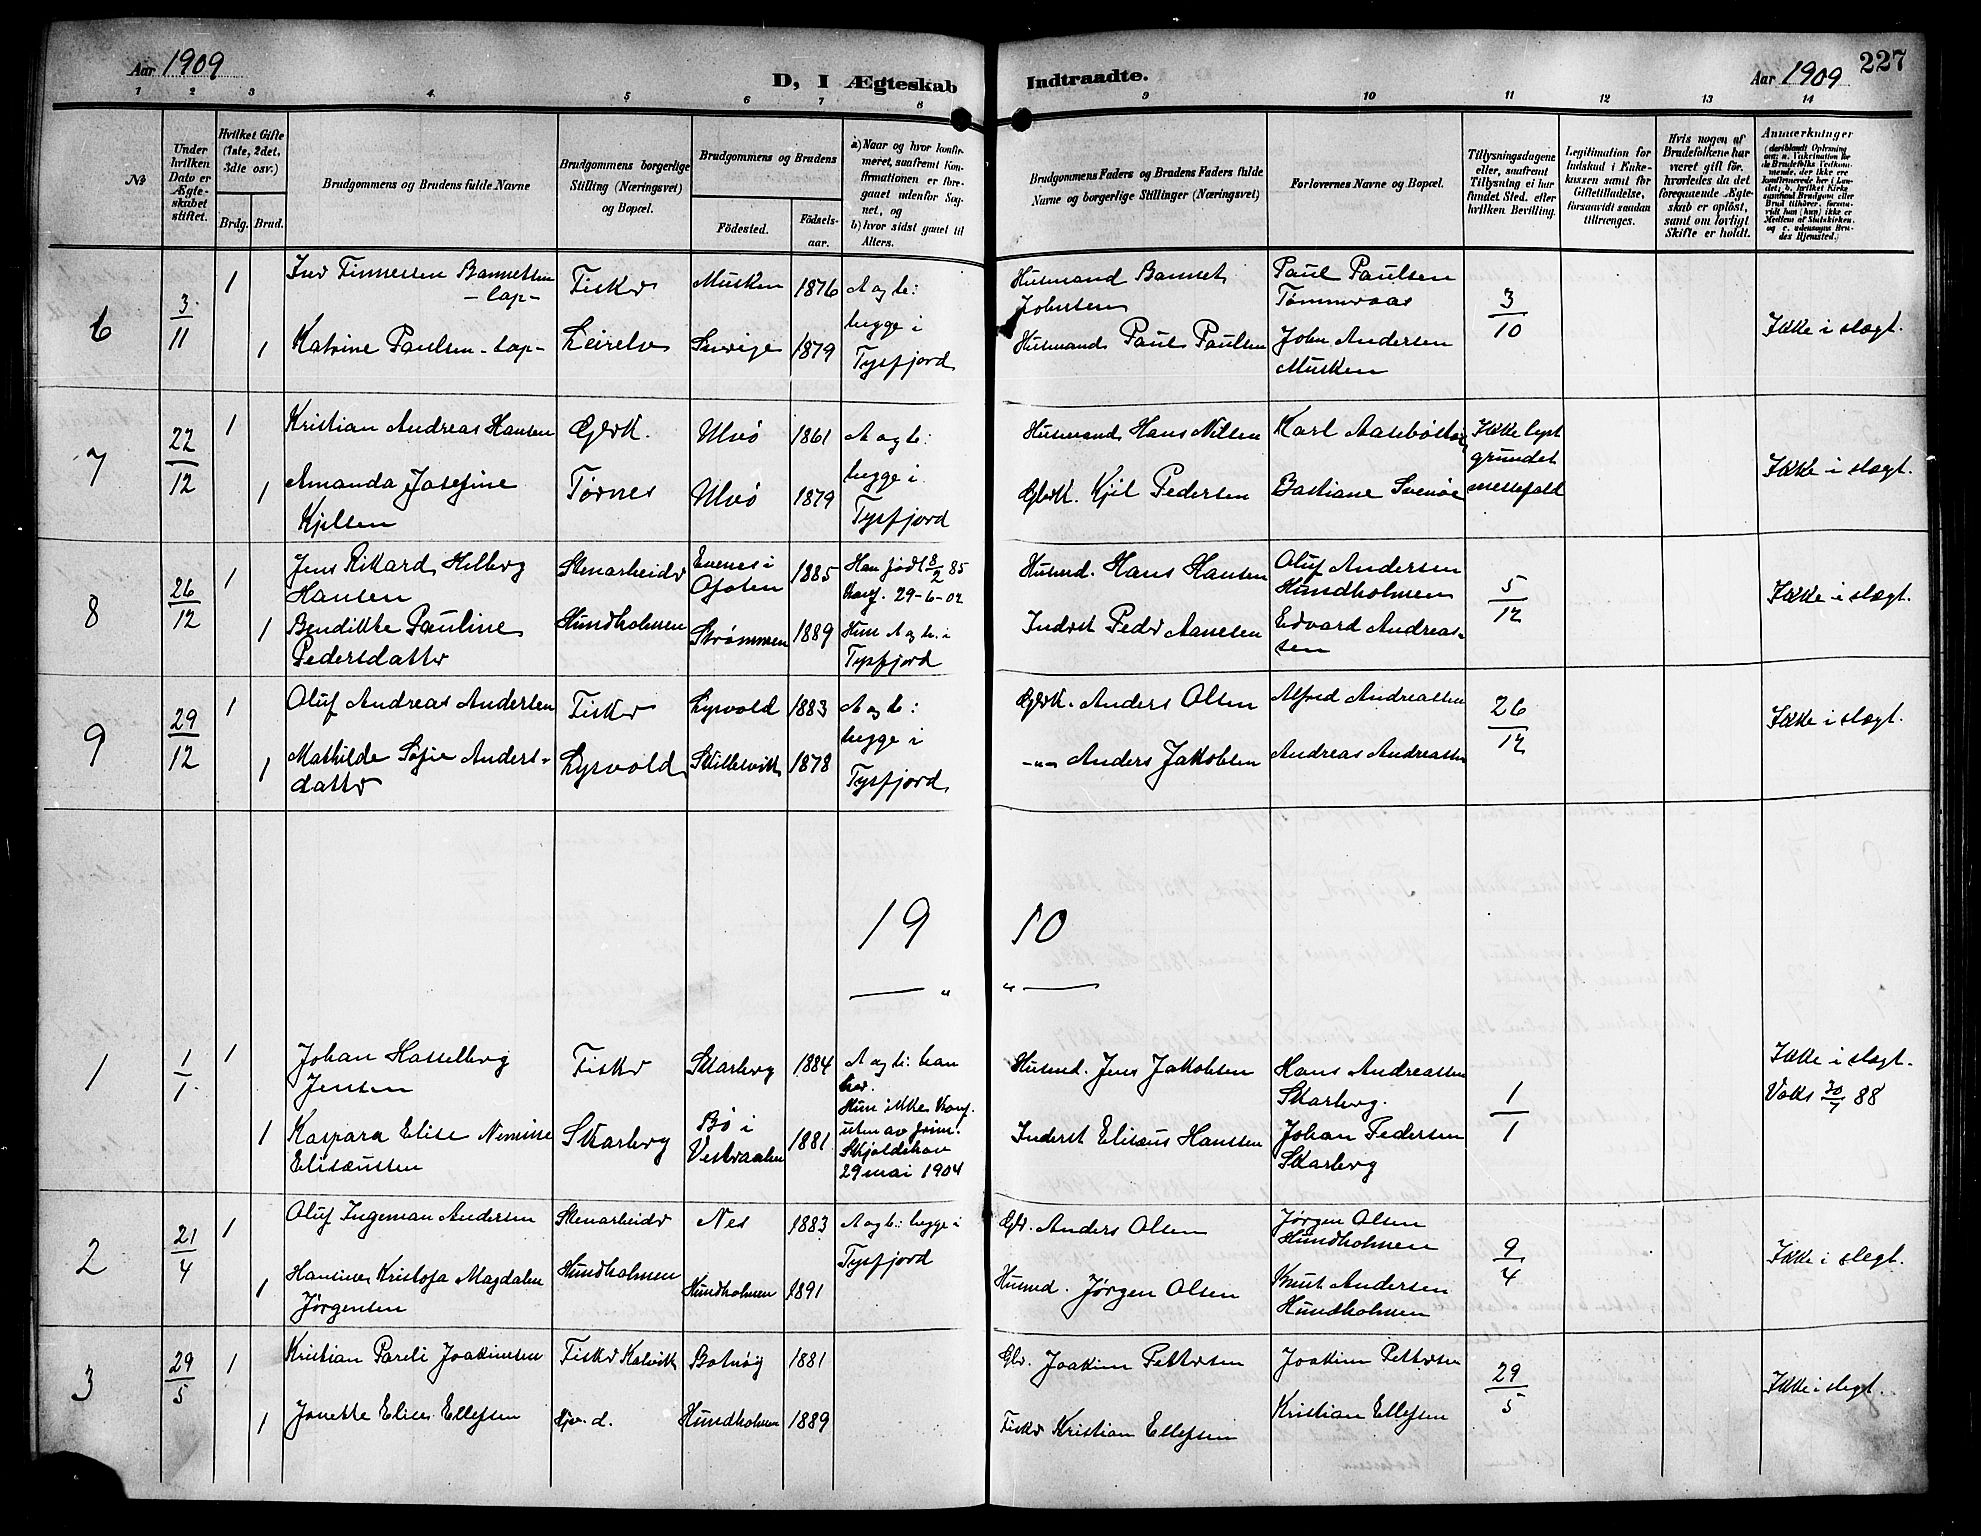 Aar 1909
D, I Ægteskab
Indtraadte.
Aar 1909
227
1 2 3 4 5 6 7 8 9 10 11 12 13 14
№
Under hvilken Dato er Ægteskabet stiftet.
Hvilket Gifte (1ste, 2det, 3die osv.)
Brdg. Brud.
Brudgommens og Brudens fulde Navne
Brudgommens borgerlige Stilling (Næringsvei) og Bopæl.
Brudgommens og Brudens
Födested.
Födselsaar.
a) Naar og hvor konfirmeret, saafremt Konfirmationen er foregaaet udenfor Sognet, og
b) hvor sidst gaaet til Alters.
Brudgommens Faders og Brudens Faders fulde Navne og borgerlige Stillinger (Næringsvei)
Forlovernes Navne og Bopæl.
Tillysningsdagene eller, saafremt Tillysning ei har fundet Sted, efter hvilken Bevilling.
Legitimation for Indskud i Enkekassen samt for Giftetilladelse, forsaavidt saadan tiltrænges.
Hvis nogen af Brudefolkene har været gift før, hvorledes da det foregaaende Ægteskab er oplöst, samt om lovligt Skifte er holdt.
Anmærkninger
6
3/11
1
Finnessen Bannetsen
-lap-
Fisker
Musken
1876
A og b:
Husmand Bannet
Johnsen
Paul Paulsen
Tømmeraas
3/10
Ikke i slægt.
1
Katrine Paulsen -lap-
Leirelv
Sverige
1879
begge i
Tysfjord
Husmand Paul Paulsen
John Andersen
Musken
7
22/12
1
Kristian Andreas Hansen
Gbrk.
Ulvø
1861
A og b:
Husmand Hans Nilsen
Karl
Ikke lyst
grundet
messefald
Ikke i slægt.
1
Amanda Josefine
Kjelsen
Tørnes
Ulvø
1879
begge i
Tysfjord
Gbrk. Kjel Pedersen
Bastian Svenøe
8
26/12
1
Jens Rikard Helberg
Hansen
Stenarbeider
Evenes i
Ofoten
1885
Han født 8/2 85
Konf. 29-6-02
Husmd. Hans Hansen
Oluf Andersen
Hundholmen
5/12
Ikke i slægt.
1
Bendikke Pauline
Pedersdatter
Hundholmen
Strømmen
1889
Hun A og b. i
Tysfjord
Inderst Peder Aanesen
Edvard Andreas-
sen
9
29/12
1
Oluf Andreas Andersen
Fisker
Lysvold
1883
A og b:
Gbrk. Anders Olsen
Alfred Andreassen
26/12
Ikke i slægt.
1
Mathilde Sofie Anders-
datter
Lysvold
Skillevik
1878
begge i
Tysfjord
-"- Anders Jakobsen
Andreas Andreassen
19 10
— " " —
1
1/1
1
Johan Hasselberg
Jensen
Fisker
Skarberg
1884
A og b: han
her.
Husmd. Jens Jakobsen
Hans Andreassen
Skarberg.
1/1
Ikke i slægt.
Vaks 30/7 88
1
Kaspara Elise Nemine
Elisæussen
Skarberg
Bø i
Vesteraalen
1881
Hun ikke konf.
uten av frim.
29 mai 1904
Inderst Elisæus Hanssen
Johan Pedersen
Skarberg
2
21/4
1
Oluf Ingeman Andersen
Stenarbeider
Nes
1883
A og b: begge i
Tysfjord
Gbr. Anders Olsen
Jørgen Olsen
Hundholmen
9/4
Ikke i slegt.
1
Hansine Kristofa Magdalen
Jørgensen
Hundholmen
Hundholmen
1891
Husmd. Jørgen Olsen
Knut Andersen
Hundholmen
3
29/5
1
Kristian Pareli Joakimsen
Fisker Kalvik
Botnøy
1881
Gbr. Joakim Pettersen
Joakim Pettersen
29/5
Ikke i slegt.
1
Jonette Elise Ellefsen
Hundholmen
1889
Fisker Kristian Ellefsen
Kristian Ellefsen